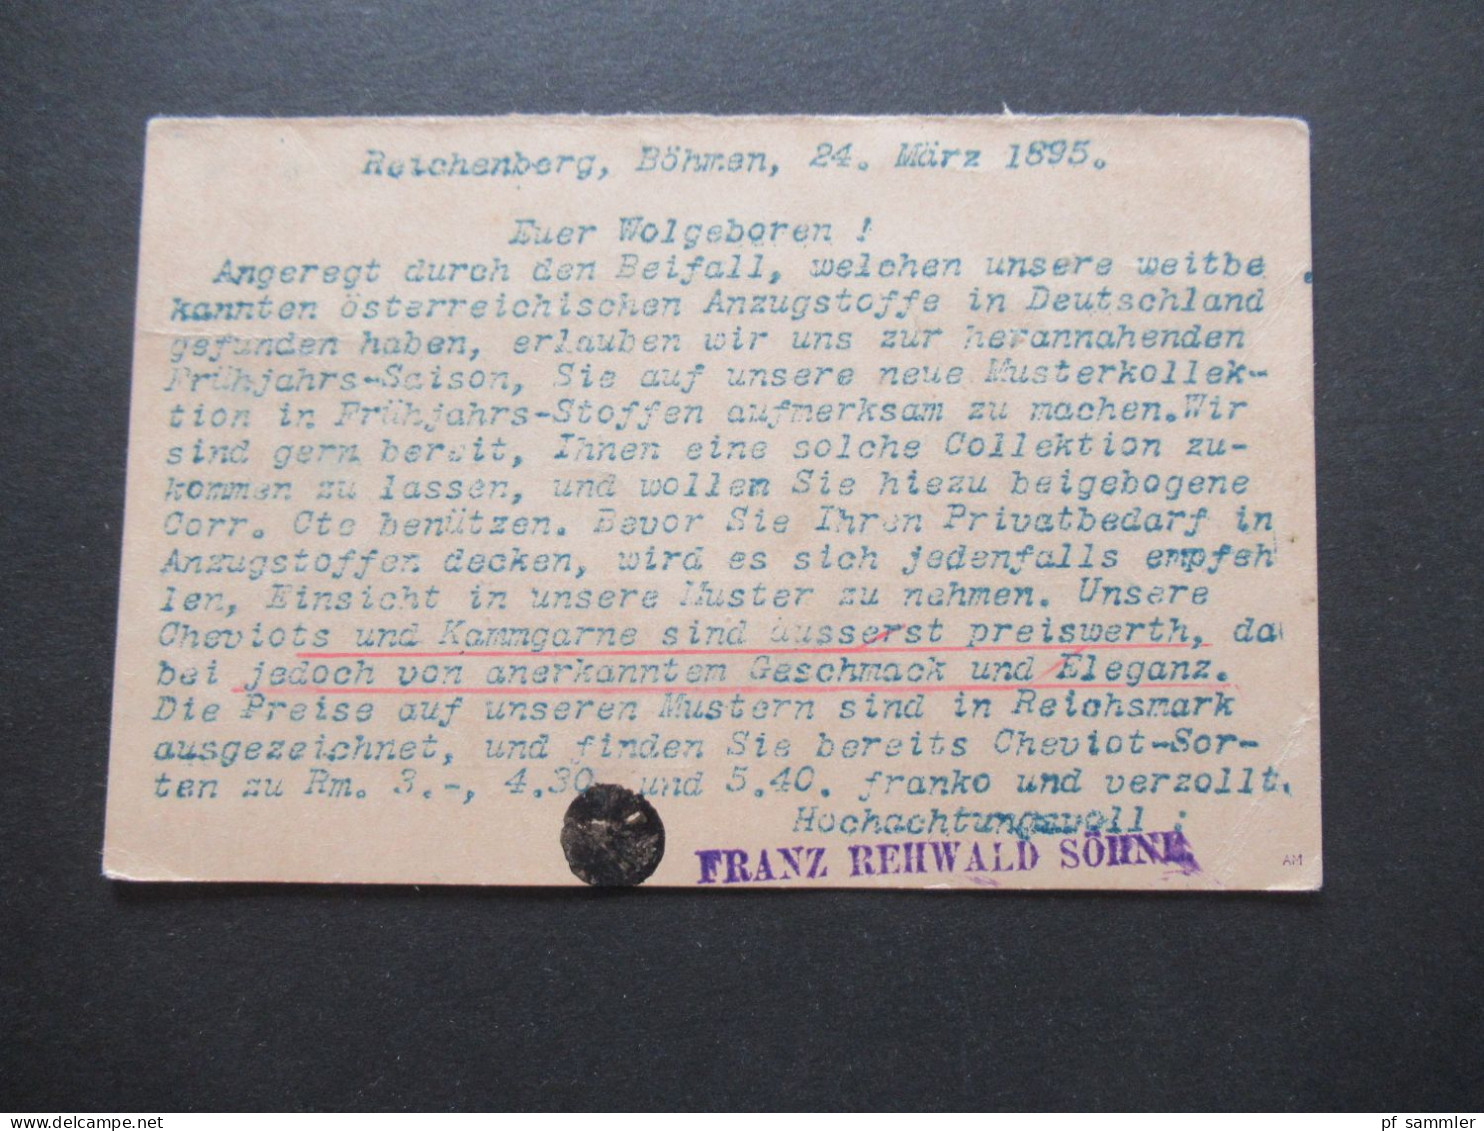 Reichenberg, Böhmen, 24. März 1895.
Euer Wolgeboren !
Angeregt durch den Beifall, welchen unsere weitbe
kannten österreichischen Anzugstoffe in Deutschland
gefunden haben, erlauben wir uns zur herannahenden
Frühjahrs-Saison, Sie auf unsere neue Musterkollek-
tion in Frühjahrs-Stoffen aufmerksam zu machen.Wir
sind gern bereit, Ihnen eine solche Collektion zu-
kommen zu lassen, und wollen Sie hiezu beigebogene
Corr. Cte benützen. Bevor Sie Ihren Privatbedarf in
Anzugstoffen decken, wird es sich jedenfalls empfeh
len, Einsicht in unsere Muster zu nehmen. Unsere
Cheviots und Kammgarne sind äusserst preiswerth, da
bei jedoch von anerkanntem Geschmack und Eleganz.
Die Preise auf unseren Mustern sind in Reichsmark
ausgezeichnet, und finden Sie bereits Cheviot-Sor-
ten zu Rm. 3.-, 4.30. und 5.40. franko und verzollt.
Hochachtungsvoll :
FRANZ REHWALD SÖHNE
AM
© oldthing.de
pf_sammler